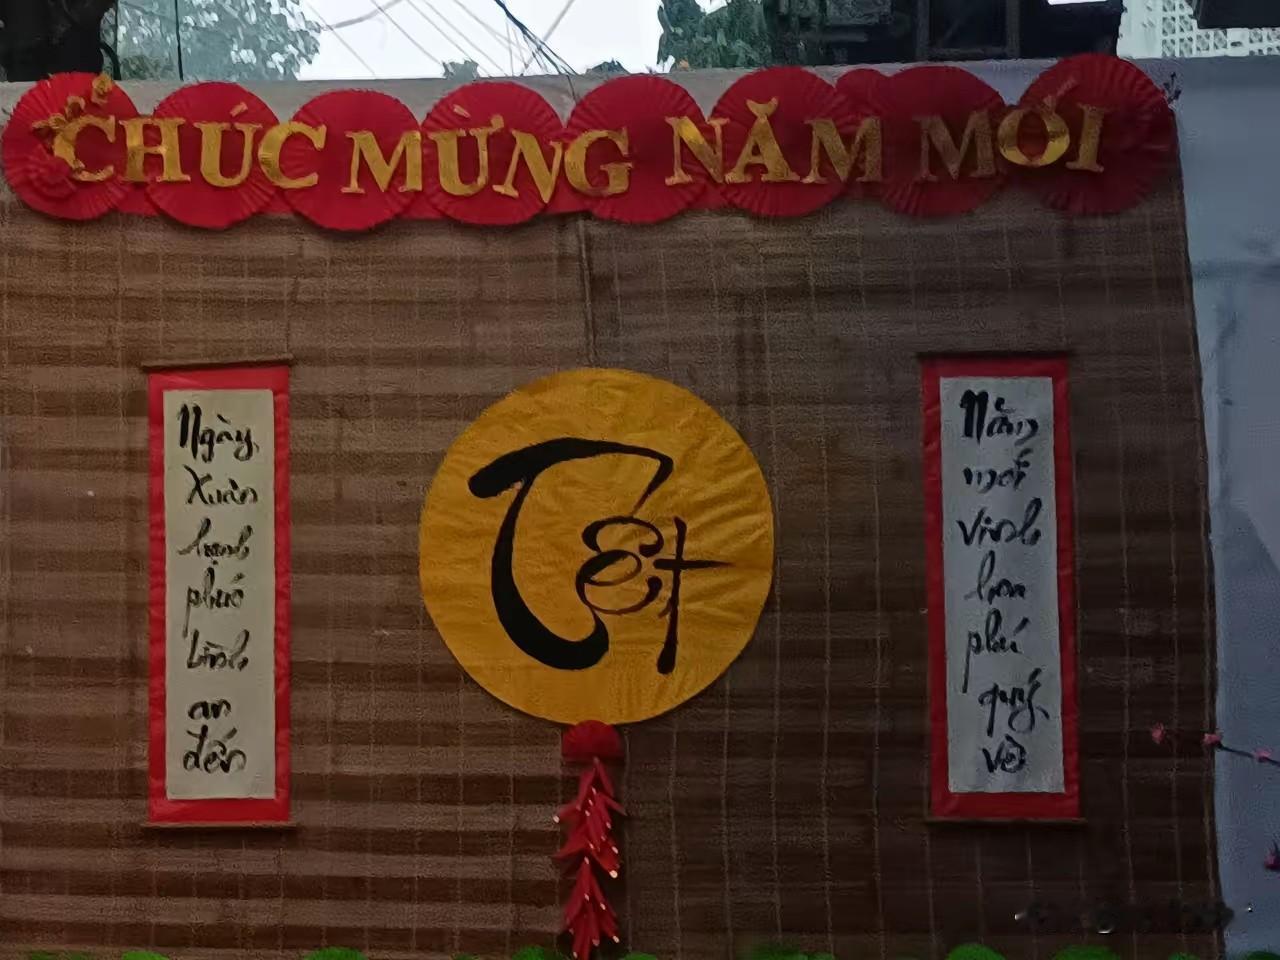 CHÚC MỪNG NĂM MỚI
Ngày
Xuân
hạnh
phúc
bình
an
đến
Tết
Năm
mới
vinh
hoa
phú
quý
về